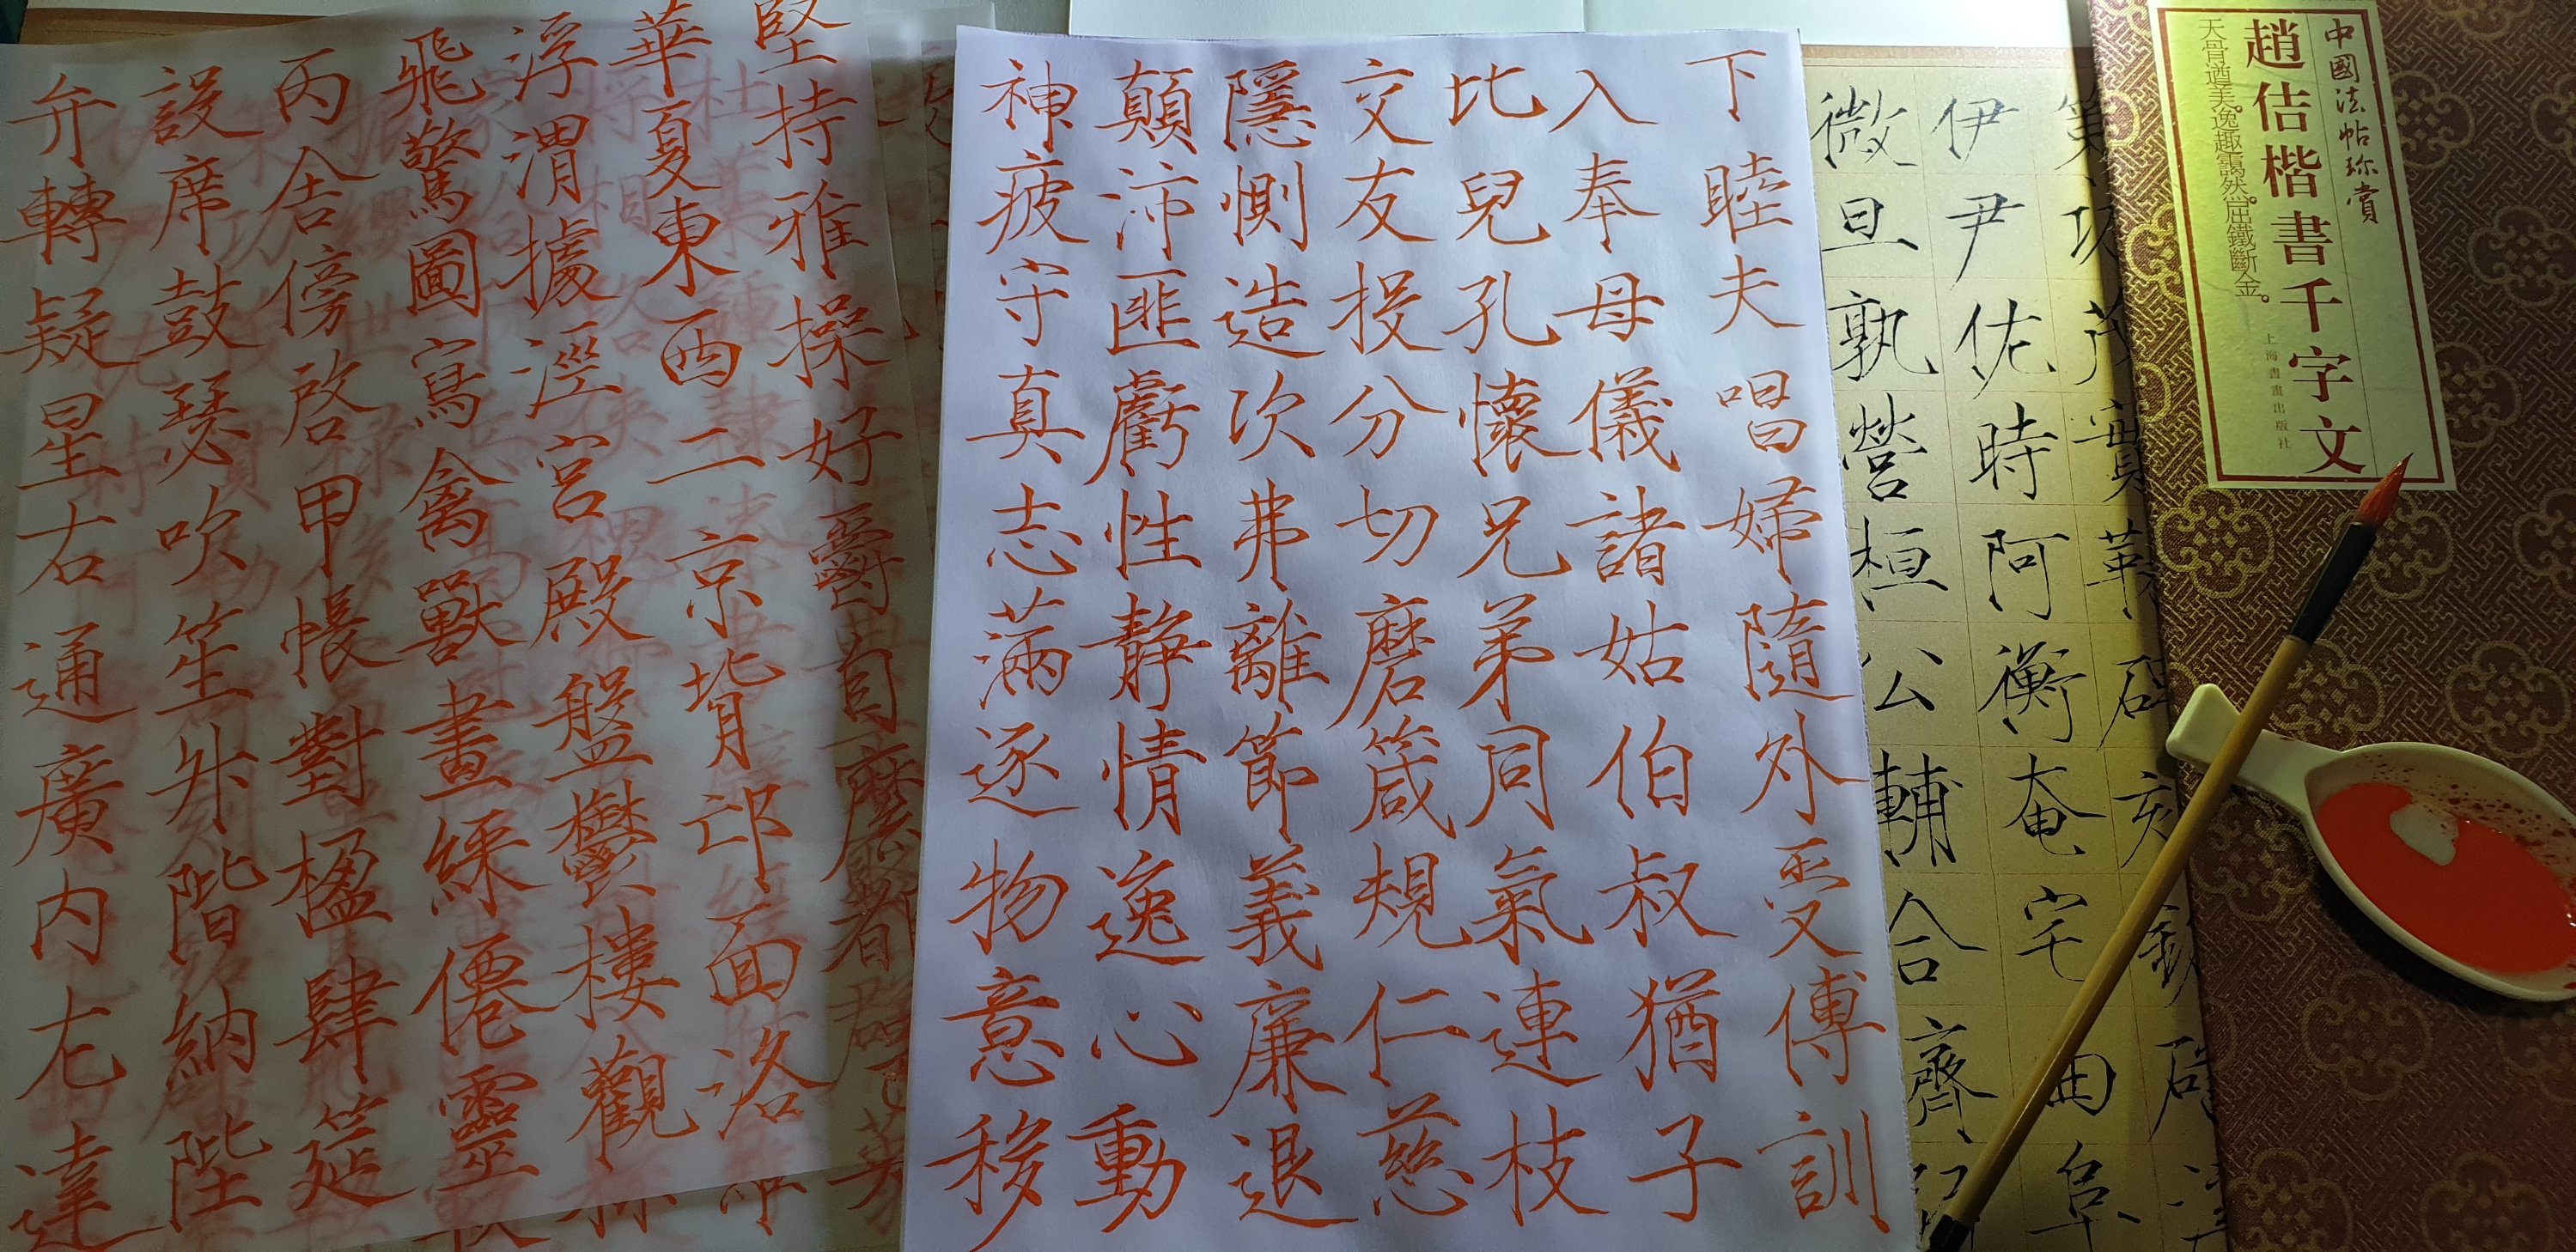 中國法帖珍賞
趙佶楷書千字文
天骨遒美。逸趣靄然。屈鐵斷金。
上海書畫出版社
伊尹佐時阿衡奄宅曲阜
微旦孰營桓公輔合
下睦夫唱婦隨外受傅訓
入奉母儀諸姑伯叔猶子
比兒孔懷兄弟同氣連枝
交友投分切磨箴規仁慈
隱惻造次弗離節義廉退
顛沛匪虧性靜情逸心動
神疲守真志滿逐物意移
堅持雅操好爵自縻都
華夏東西二京背邙面洛
浮渭據涇宮殿盤鬱樓觀
飛驚圖寫禽獸畫綵僊靈
丙舍傍啓甲帳對楹肆筵
設席鼓瑟吹笙升階納陛
弁轉疑星右通廣內左達